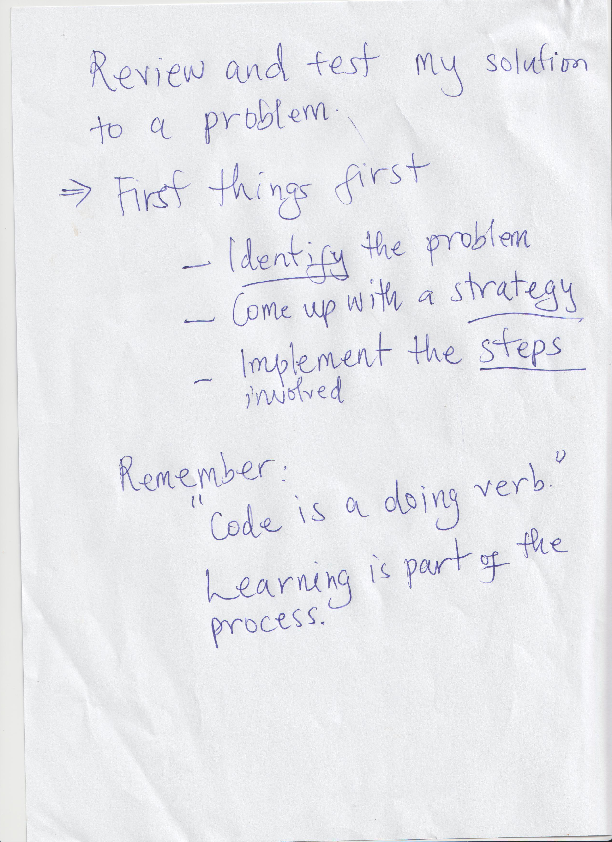 Review and test my solution
to a problem.
⇒ First things first
– Identify the problem
– Come up with a strategy
– Implement the steps
involved
Remember:
"Code is a doing verb."
Learning is part of the
process.